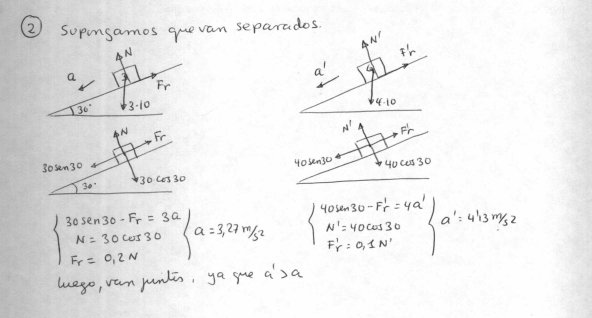 ② Supongamos que van separados.
N
a
3
Fr
30°
3·10
N'
a'
4
F'r
4·10
N
Fr
30 sen 30
30°
30 cos 30
N'
F'r
40 sen 30
40 cos 30
30 sen 30 - Fr = 3a
N = 30 cos 30
Fr = 0,2 N
a = 3,27 m/s2
40 sen 30 - F'r = 4a'
N' = 40 cos 30
F'r = 0,1 N'
a' = 4'13 m/s2
luego, van juntos, ya que a' > a